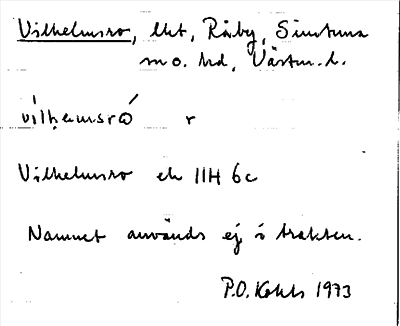 Vilhelmsro, lht, Råby, Simtuna
sn o. hd, Västm. l.
vilhæmsró r
Vilhelmsro ek 11H 6c
Namnet används ej i trakten.
P.O. 1973